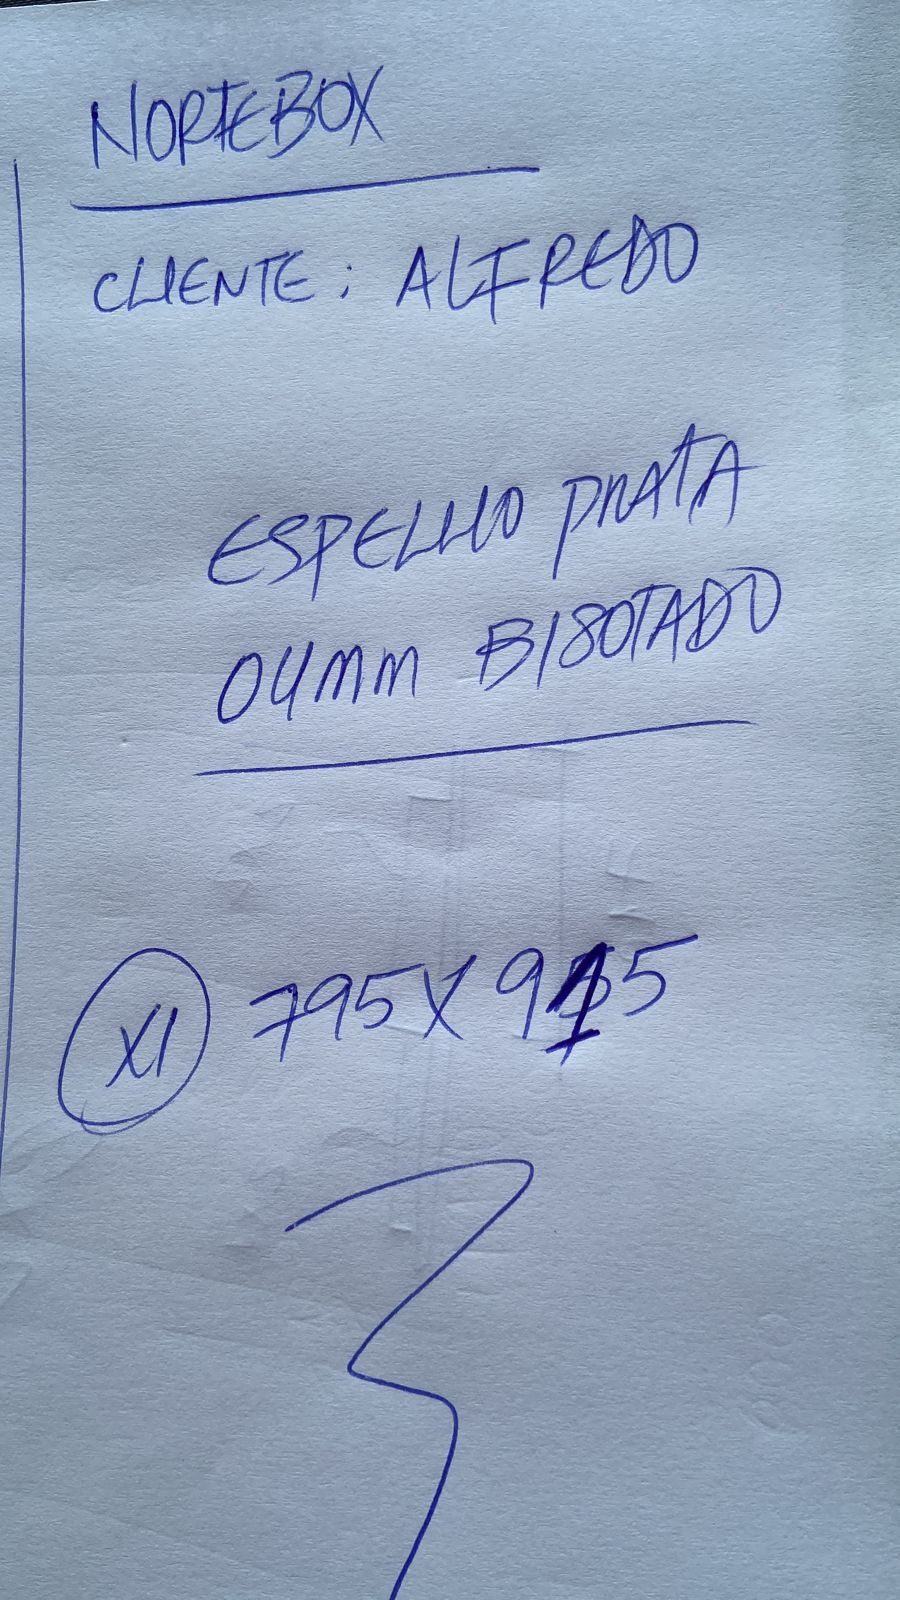 NORTEBOX
CLIENTE: ALFREDO
ESPELHO PRATA
04MM BISOTADO
X1 795X915